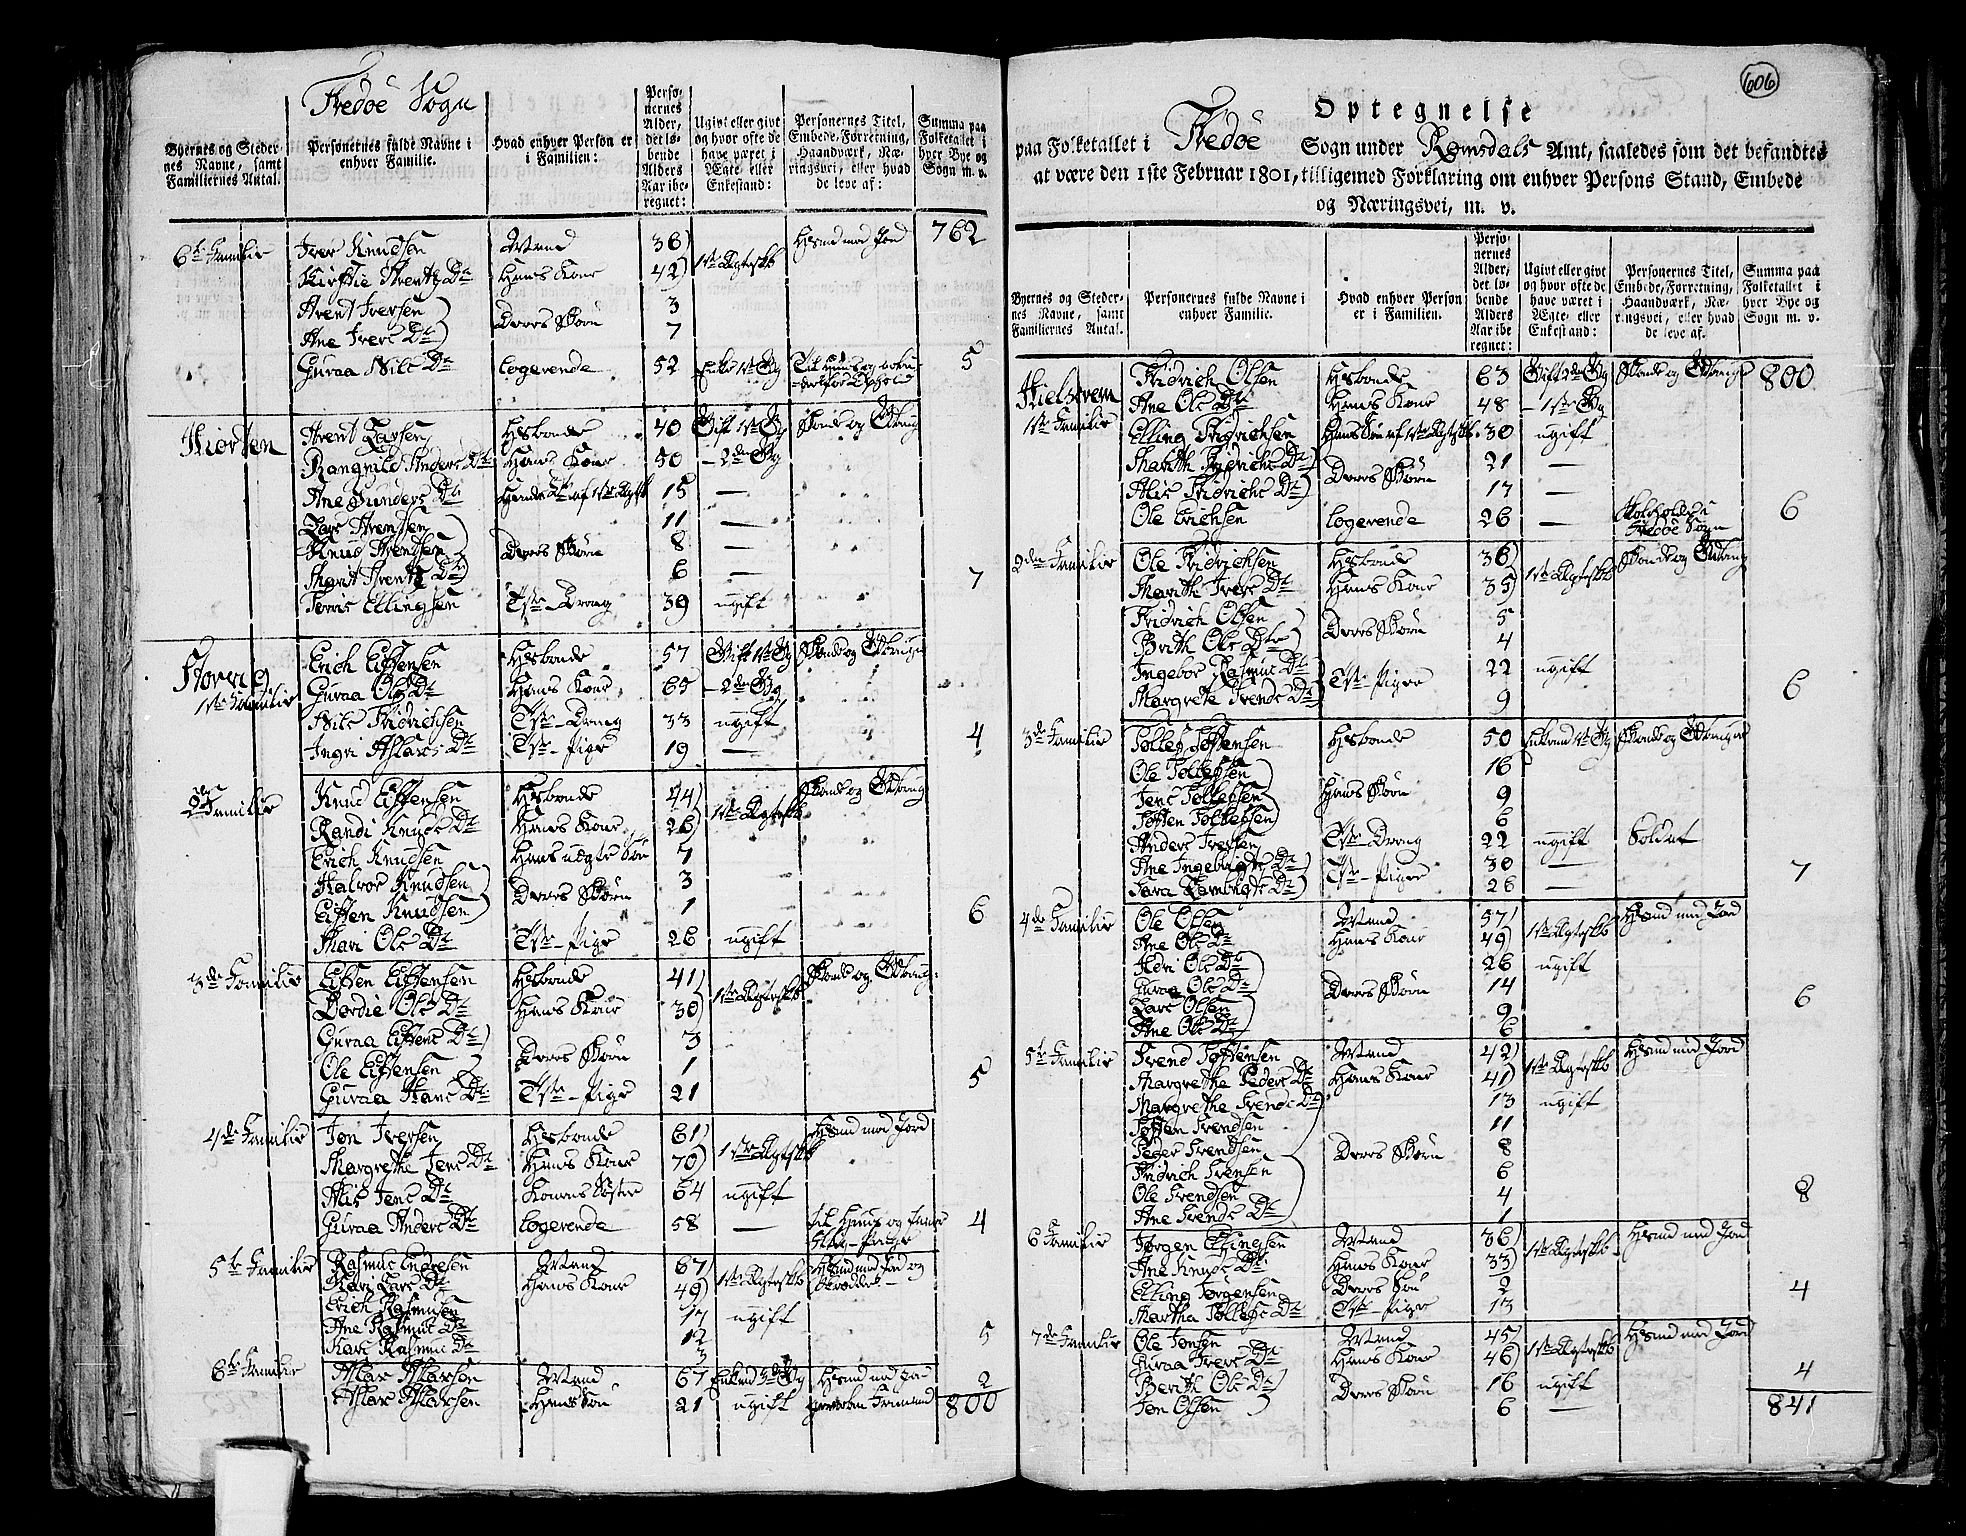 Fredöe Sogn
Byernes og Steder-
nes Navne, samt
Familiernes Antal.
Personernes fulde Navne i
enhver Familie.
Hvad enhver Person er
i Familien:
Perso-
nernes
Alder,
det lø-
bende
Alders
Aar ibe-
regnet:
Ugivt eller givt
og hvor ofte de
have været i
Ægte- eller
Enkestand:
Personernes Titel,
Embede, Forretning,
Haandværk, Næ-
ringsvei, eller hvad
de leve af:
Summa paa
Folketallet i
hver Bye og
Sogn m. v.
6te Familie Iver Knudsen Mand 36 1ste Ægteskb Huusmd med Jord 762
Kirstie Arents Dtr Hans Kone 42
Arent Iversen 3
Ane Ivers Dtr Deres Børn 7
Guraa Nils Dtr logerende 52 Enke 1ste Gg 5
Arent Larsen Husbonde 40 Gift 1ste Gg Bonde og
Rangnild Anders Dtr Hans Kone 50 – 2den Gg
Ane Gunders Dtr 15 —
Lars Arendsen 11 —
Knud Arendsen Deres Børn 8 —
Marit Arents Dtr 6 — 7
Ellingsen Tste-Dreng 39 ugift
1ste Familie Erich Eistensen Husbonde 57 Gift 1ste Gg Bonde og
Guraa Ols Dtr Hans Kone 65 – 2den Gg
Nils Fridrichsen Tste-Dreng 33 ugift
Ingri Aslacs Dtr Tste-Pige 19 — 4
2den Familie Knud Eistensen Husbonde 44 1ste Ægteskb Bonde og
Randi Knuds Dtr Hans Kone 26
Erich Knudsen Hans uægte Søn 7
Halvor Knudsen 3
Eisten Knudsen Deres Børn 1 6
Mari Ols Dtr Tste-Pige 26 ugift
3de Familie Eisten Eistensen Husbonde 41 1ste Ægteskb Bonde og
Dordie Ols Dtr Hans Kone 30
Guraa Eistens Dtr 3
Ole Eistensen Deres Børn 1
Guraa Hans Dtr Tste-Pige 21 5
4de Familie Jon Iversen Husbonde 61 1ste Ægteskb Huusmd med Jord
Margrethe Jens Dtr Hans Kone 70
Alis Jens Dtr Konens Søster 64 ugift
Guraa Anders Dtr logerende 58 — 4
5te Familie Rasmus Endresen Mand 67 1ste Ægteskb Huusmd med Jord og
Kari Lars Dtr Hans Kone 49 Skrædder
Erich Rasmusen 17 ugift
Ane Rasmus Dtr 12
Kari Rasmus Dtr 3 5
6te Familie Aslac Aslacsen Mand 67 Huusmd med Jord 2
Aslac Aslacsen Hans Søn 21 ugift 800
606
Optegnelse
paa Folketallet i Fredöe Sogn under Romsdals Amt, saaledes som det befandtes
at være den 1ste Februar 1801, tilligemed Forklaring om enhver Persons Stand, Embede
og Næringsvei, m. v.
Byernes og Steder-
nes Navne, samt
Familiernes Antal.
Personernes fulde Navne i
enhver Familie.
Hvad enhver Person
er i Familien.
Perso-
nernes
Alder,
det lø-
bende
Alders
Aar ibe-
regnet:
Ugivt eller givt
og hvor ofte de
have været i
Ægte- eller
Enkestand:
Personernes Titel,
Embede, Forretning,
Haandværk, Næ-
ringsvei, eller hvad
de leve af.
Summa paa
Folketallet i
hver Bye og
Sogn m. v.
Fridrich Olsen Husbonde 63 Gift 2den Gg Bonde og 800
Ane Ols Dtr Hans Kone 48 – 1ste Gg
1ste Familie Elling Fridrichsen Hans Søn af 1ste Ægteskb 30 ugift
Marith Fridrichs Dtr 21 —
Alis Fridrichs Dtr Deres Børn 17 —
Ole Erichsen logerende 26 — Skoleholder i
Fredöe Sogn 6
2den Familie Ole Fridrichsen Husbonde 36 1ste Ægteskb Bonde og
Marith Ivers Dtr Hans Kone 35
Fridrich Olsen 5
Brith Ols Dtr Deres Børn 4
Ingebor Rasmus Dtr 22 ugift
Margrete Trends Dtr Tste-Piger 9 6
3de Familie Tollef Tostensen Husbonde 50 Enkemd 1ste Gg Bonde og
Ole Tollefsen 16
Jens Tollefsen Hans Børn 9
Tosten Tollefsen 6
Anders Iversen Tste-Dreng 22 ugift Soldat
Ane Ingebrigts Dtr 30 —
Tste-Piger 26 — 7
4de Familie Ole Olsen Mand 57 1ste Ægteskb Huusmd med Jord
Ane Ols Dtr Hans Kone 49
Ols Dtr 26 ugift
Guraa Ols Dtr 14
Lars Olsen Deres Børn 9
Ane Ols Dtr 6 6
5te Familie Trend Tostensen Mand 42 1ste Ægteskb Huusmd med Jord
Margrethe Peders Dtr Hans Kone 41
Margrethe Trends Dtr 13 ugift
Tosten Trendsen 11
Peder Trendsen Deres Børn 8
Fridrich Trensen 6
Ole Trendsen 4
Ane Trends Dtr 1 8
6 Familie Jørgen Ellingsen Mand 36 1ste Ægteskb Huusmd med Jord
Ane Knuds Dtr Hans Kone 33
Elling Jørgensen Deres Søn 2
Martha Tollefs Dtr Tste-Pige 13 4
7de Familie Ole Jonsen Mand 45 1ste Ægteskb Huusmd med Jord
Guraa Ivers Dtr Hans Kone 46
Berith Ols Dtr Deres Børn 16 ugift
Jon Olsen 6 — 4
841